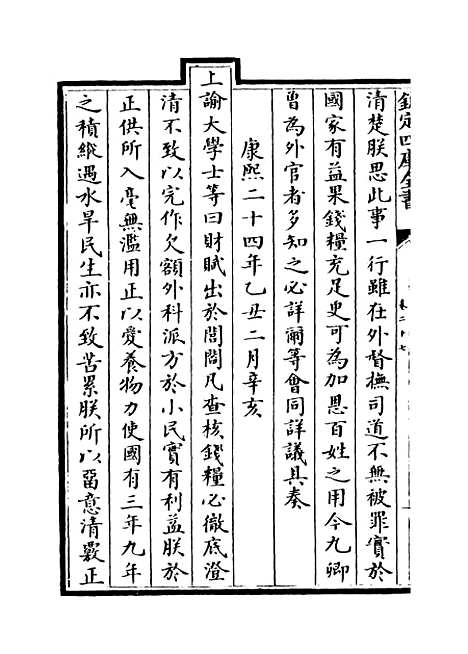 欽定四庫全書
卷二十七
清楚朕思此事一行雖在外督撫司道不無被罪實於
國家有益果錢糧充足史可為加恩百姓之用今九卿
曾為外官者多知之必詳爾等會同詳議具奏
康熙二十四年乙丑二月辛亥
上諭大學士等曰財賦出於閭閻凡查核錢糧必徹底澄
清不致以完作欠額外科派方於小民實有利益朕於
正供所入毫無濫用正以愛養物力使國有三年九年
之積縱遇水旱民生亦不致苦累朕所以留意清釐正